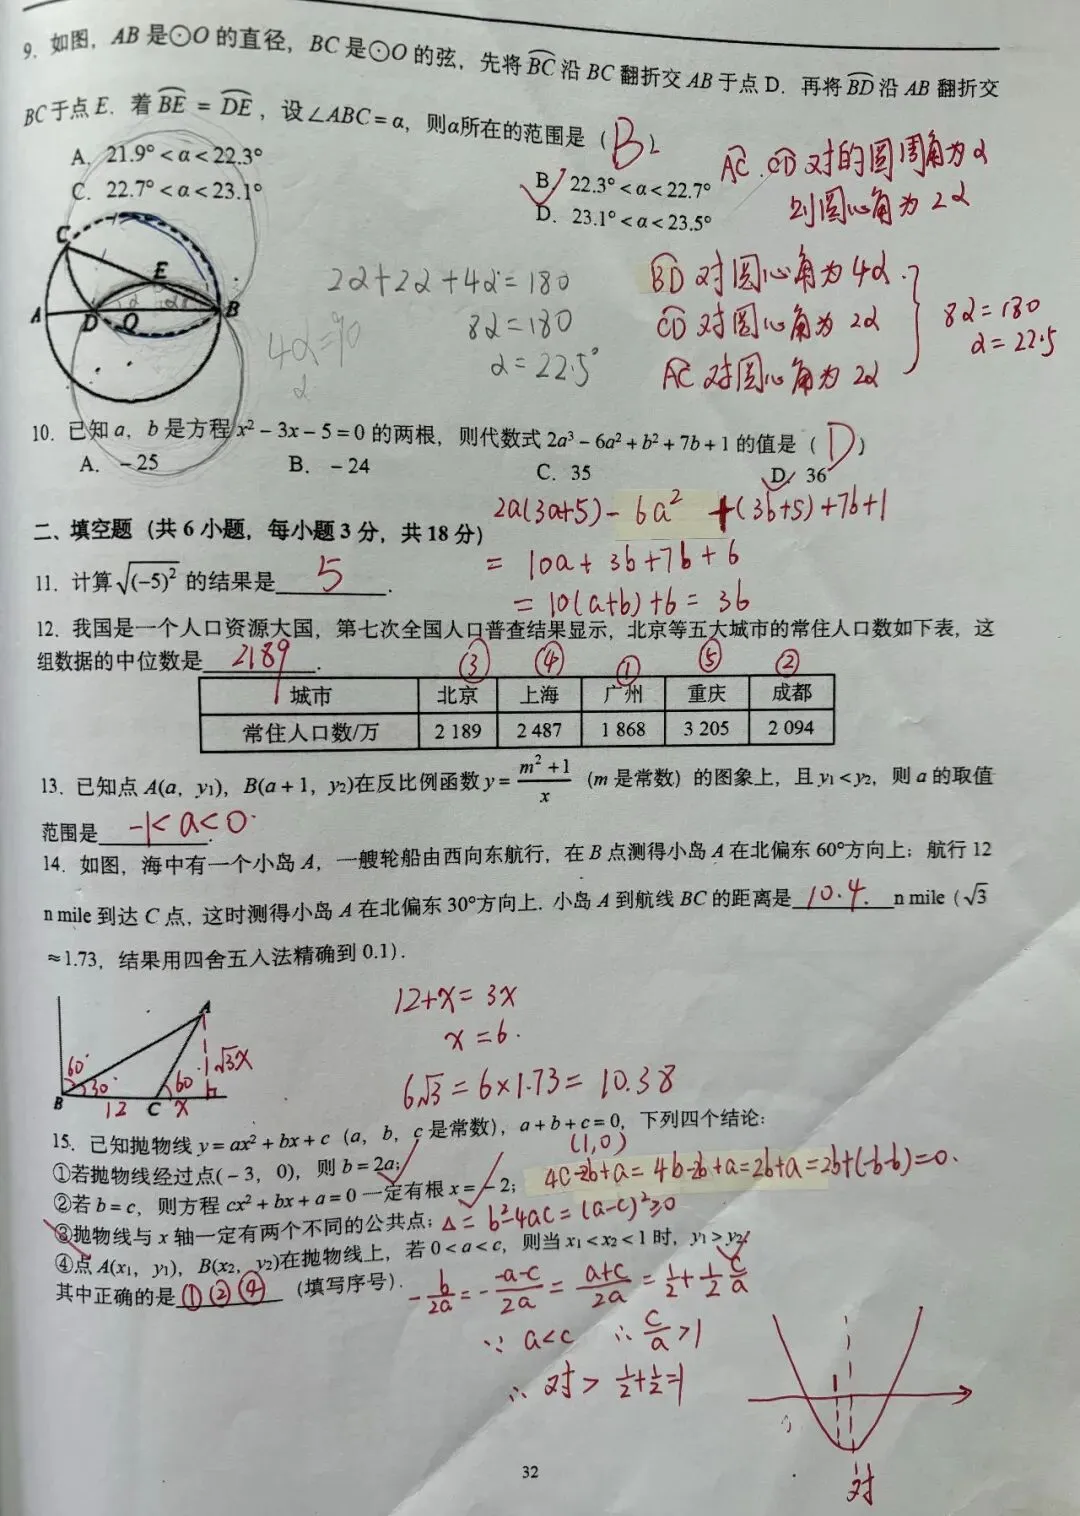 9. 如图, AB 是⊙O 的直径, BC 是⊙O 的弦, 先将 BC 沿 BC 翻折交 AB 于点 D. 再将 BD 沿 AB 翻折交
BC 于点 E. 着 BE = DE, 设∠ABC = α, 则α所在的范围是 ( B )
A. 21.9° < α < 22.3°
B. 22.3° < α < 22.7°
C. 22.7° < α < 23.1°
D. 23.1° < α < 23.5°
AC . CD 对的圆周角为 α
则圆心角为 2α
C
E
A
D
O
B
2α+2α+4α=180
8α=180
α=22.5°
4α=90
α
BD 对圆心角为 4α.
CD 对圆心角为 2α
AC 对圆心角为 2α
8α=180
α=22.5
10. 已知 a, b 是方程 x² − 3x − 5 = 0 的两根, 则代数式 2a³ − 6a² + b² + 7b + 1 的值是 ( D )
A. −25
B. −24
C. 35
D. 36
2a(3a+5) − 6a² + (3b+5) + 7b+1
= 10a + 3b + 7b + 6
= 10(a+b) + 6 = 36
二、填空题 (共 6 小题, 每小题 3 分, 共 18 分)
11. 计算 √(−5)² 的结果是 5 .
12. 我国是一个人口资源大国, 第七次全国人口普查结果显示, 北京等五大城市的常住人口数如下表, 这
组数据的中位数是 2189 .
③ ④ ① ⑤ ②
城市 北京 上海 广州 重庆 成都
常住人口数/万 2 189 2 487 1 868 3 205 2 094
13. 已知点 A(a, y₁), B(a + 1, y₂)在反比例函数 y = (m² + 1)/x (m 是常数) 的图象上, 且 y₁ < y₂, 则 a 的取值
范围是 −1<a<0 .
14. 如图, 海中有一个小岛 A, 一艘轮船由西向东航行, 在 B 点测得小岛 A 在北偏东 60°方向上; 航行 12
n mile 到达 C 点, 这时测得小岛 A 在北偏东 30°方向上. 小岛 A 到航线 BC 的距离是 10.4. n mile (√3
≈1.73, 结果用四舍五入法精确到 0.1).
A
60°
30°
60
√3x
B
12
C
x
12+x = 3x
x = 6.
6√3 = 6×1.73 = 10.38
15. 已知抛物线 y = ax² + bx + c (a, b, c 是常数), a + b + c = 0, 下列四个结论:
(1,0)
①若抛物线经过点(−3, 0), 则 b = 2a;
②若 b = c, 则方程 cx² + bx + a = 0 一定有根 x = −2;
4c−2b+a = 4b−2b+a = 2b+a = 2b+(−b−b) = 0.
③抛物线与 x 轴一定有两个不同的公共点;
Δ = b²−4ac = (a−c)² ≥0
④点 A(x₁, y₁), B(x₂, y₂)在抛物线上, 若 0 < a < c, 则当 x₁ < x₂ < 1 时, y₁ > y₂.
其中正确的是 ①②④ (填写序号).
−b/2a = −(−a−c)/2a = (a+c)/2a = 1/2 + 1/2 c/a
∵ a<c ∴ c/a >1
∴ 对 > 1/2+1/2=1
1
对
32